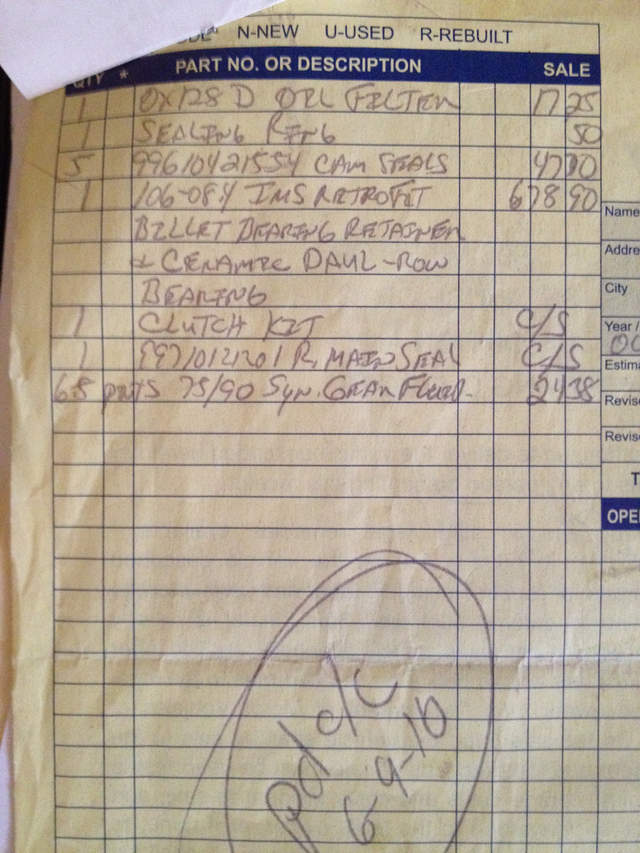 N-NEW U-USED R-REBUILT
QTY * PART NO. OR DESCRIPTION SALE
1 OX128 D OIL FILTER 17 25
1 SEALING RING 50
5 99610421554 CAM SEALS 47
1 106-08.4 IMS RETROFIT 678 90
BILLET BEARING RETAINER
& CERAMIC DAUL-ROW
BEARING
1 CLUTCH KIT C/S
1 99701012101 R. MAIN SEAL C/S
75/90 SYN. GEAR FLUID. 24 38
Name
Addre
City
Year /
Estima
Revise
Revise
T
OPE
pd c/c
6-9-10